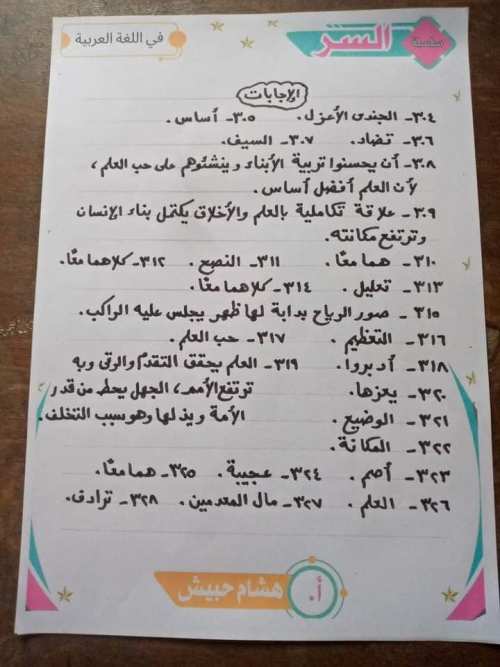 سلسلة
السر
في اللغة العربية
الإجابات
٣٠٤- الجندى الأعزل. ٣٠٥- أساس.
٣٠٦- تضاد. ٣٠٧- السيف.
٣٠٨- أن يحسنوا تربية الأبناء وينشئوهم على حب العلم،
لأن العلم أفضل أساس.
٣٠٩- علاقة تكاملية بالعلم والأخلاق يكتمل بناء الإنسان
وترتفع مكانته.
٣١٠- هما معًا. ٣١١- النصح. ٣١٢- كلاهما معًا.
٣١٣- تعليل. ٣١٤- كلاهما معًا.
٣١٥- صور الرياح بدابة لها ظهر يجلس عليه الراكب.
٣١٦- التعظيم. ٣١٧- حب العلم.
٣١٨- أدبروا. ٣١٩- العلم يحقق التقدم والرقى وبه
٣٢٠- يعزها. ترتفع الأمم، الجهل يحط من قدر
٣٢١- الوضيع. الأمة ويذلها وهو سبب التخلف.
٣٢٢- المكانة.
٣٢٣- أصم. ٣٢٤- عجيبة. ٣٢٥- هما معًا.
٣٢٦- العلم. ٣٢٧- مال المعدمين. ٣٢٨- ترادف.
أ. هشام حبيش